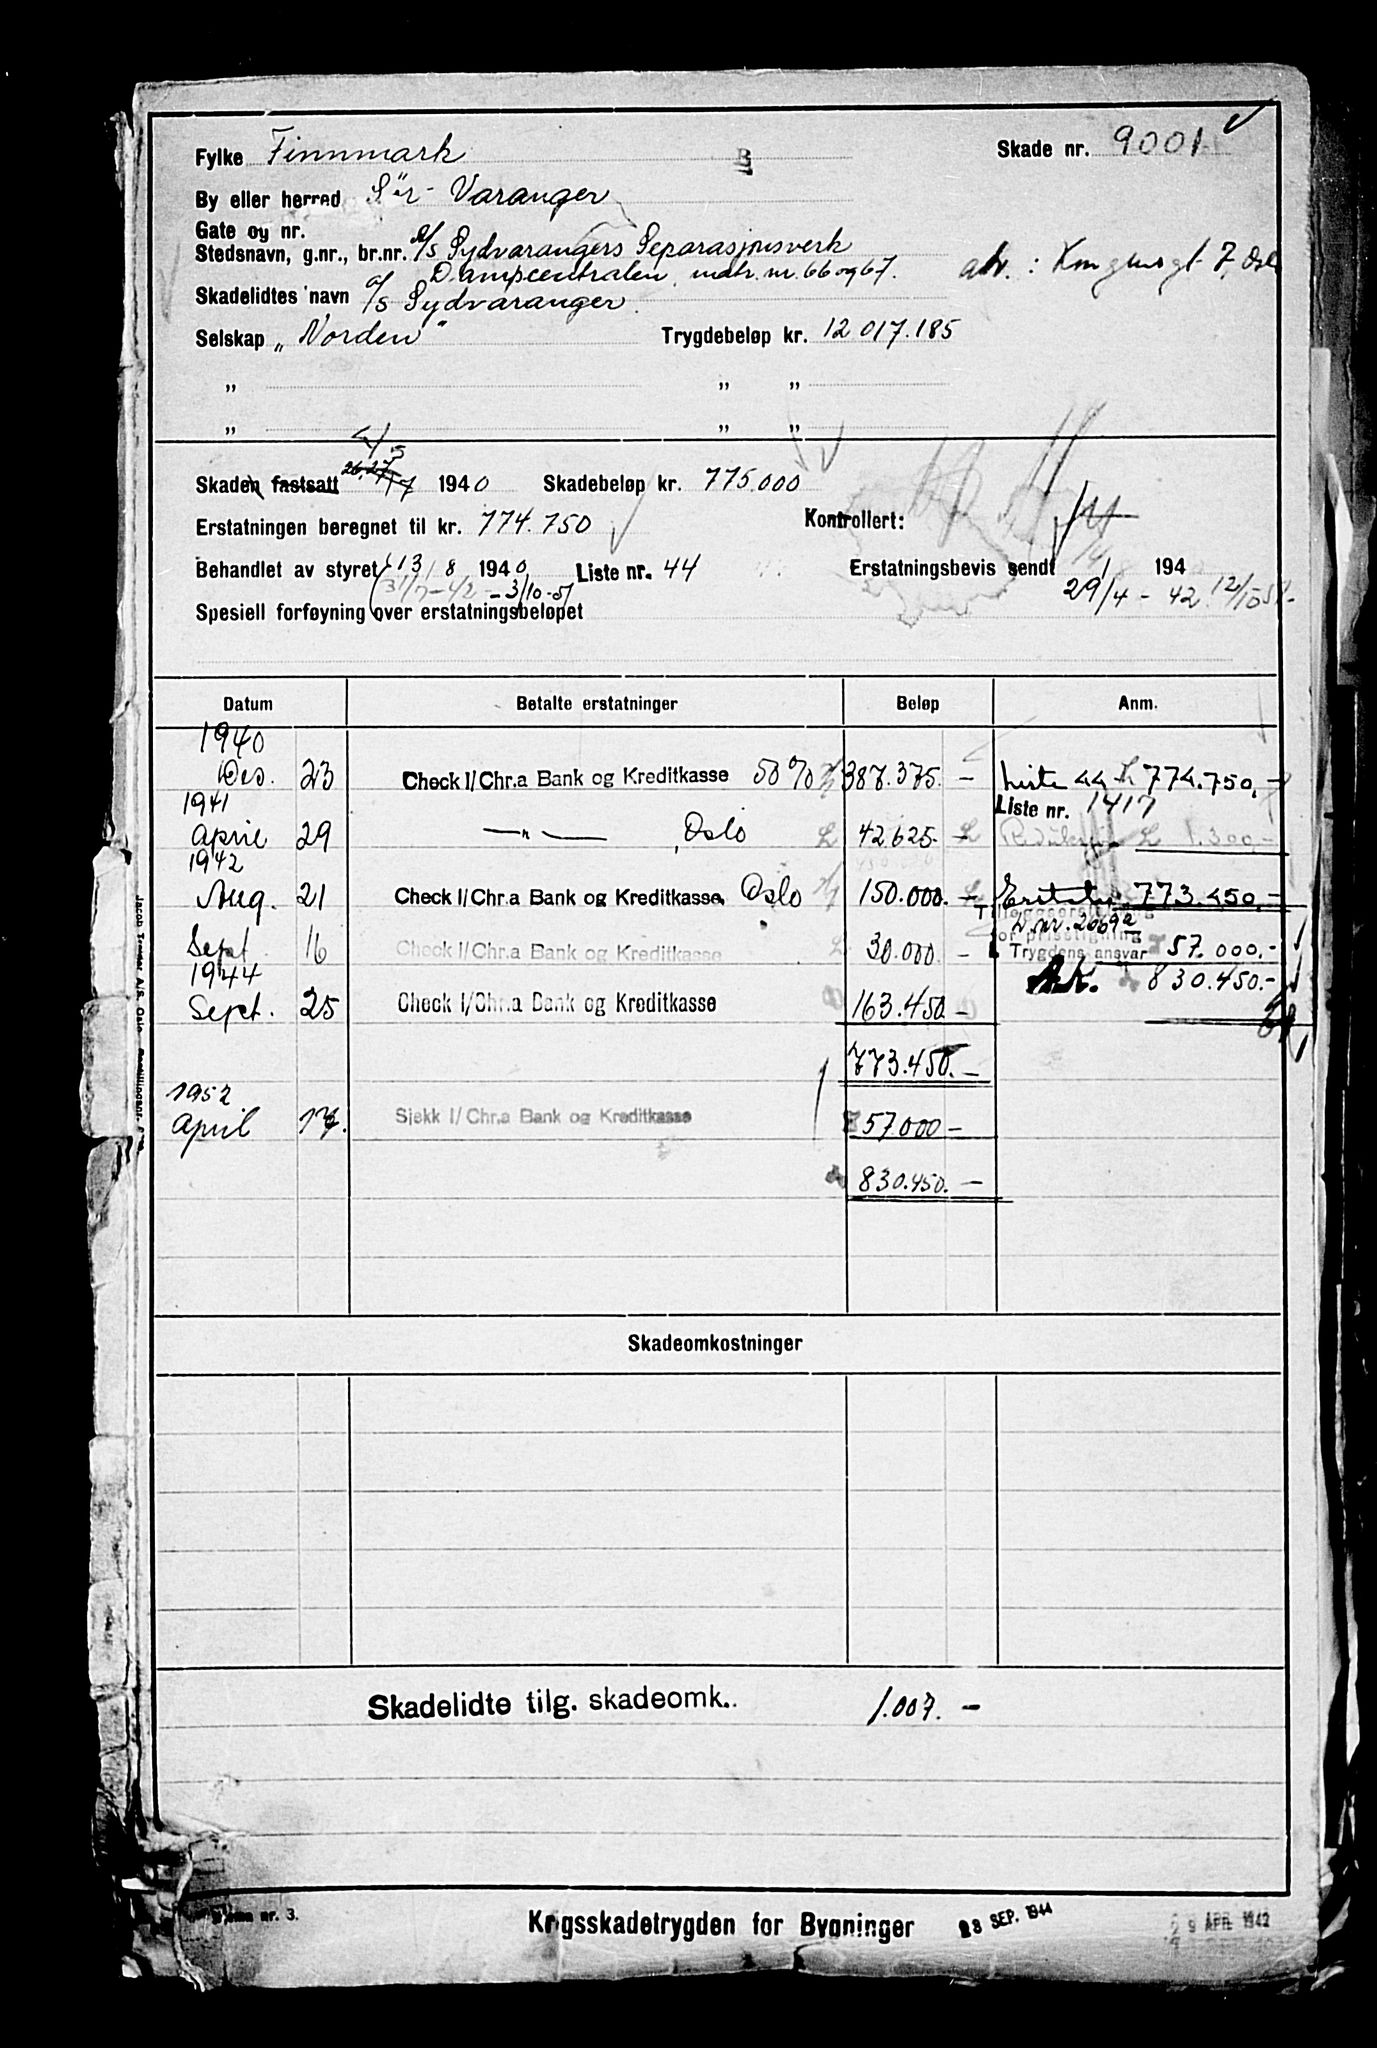 Fylke Finnmark B Skade nr. 9001
By eller herred Sör-Varanger
Gate og nr.
Stedsnavn, g.nr., br.nr. A/S Sydvarangers Separasjonsverk
Dampcentralen, matr. nr. 66 og 67.
Skadelidtes navn A/S Sydvaranger.
Selskap „Norden" Trygdebeløp kr. 12 017.185
„ „ „
„ „ „
4/5
Skaden fastsatt 26,27/7 1940 Skadebeløp kr. 775.000
Erstatningen beregnet til kr. 774.750 Kontrollert:
Behandlet av styret 13/8 1940 Liste nr. 44 Erstatningsbevis sendt 194
31/7-42 - 3/10-51 29/4 - 42 12/10 51-
Spesiell forføyning over erstatningsbeløpet
Datum Betalte erstatninger Beløp Anm.
1940
Des. 23 Check I/Chr.a Bank og Kreditkasse 50% 387.375.- Liste 44 774.750.-
1941 Liste nr. 1417
April 29 -„- Oslo 42.625.- 1.300.-
1942
Aug. 21 Check I/Chr.a Bank og Kreditkasse, Oslo 150.000.- 773.450.-
Tilleggserstatning
L. nr. 2669a
for prisstigning
Sept 16 Check I/Chr.a Bank og Kreditkasse 30.000.- Trygdens ansvar 57.000.-
1944 830.450.-
Sept. 25 Check I/Chr.a Bank og Kreditkasse 163.450.-
773.450.-
1952
April 17. Sjekk I/Chr.a Bank og Kreditkasse 57.000-
830.450.-
Skadeomkostninger
Skadelidte tilg. skadeomk. 1.007.-
nr. 3.
Krigsskadetrygden for Bygninger
SEP. 1944
APR 1942